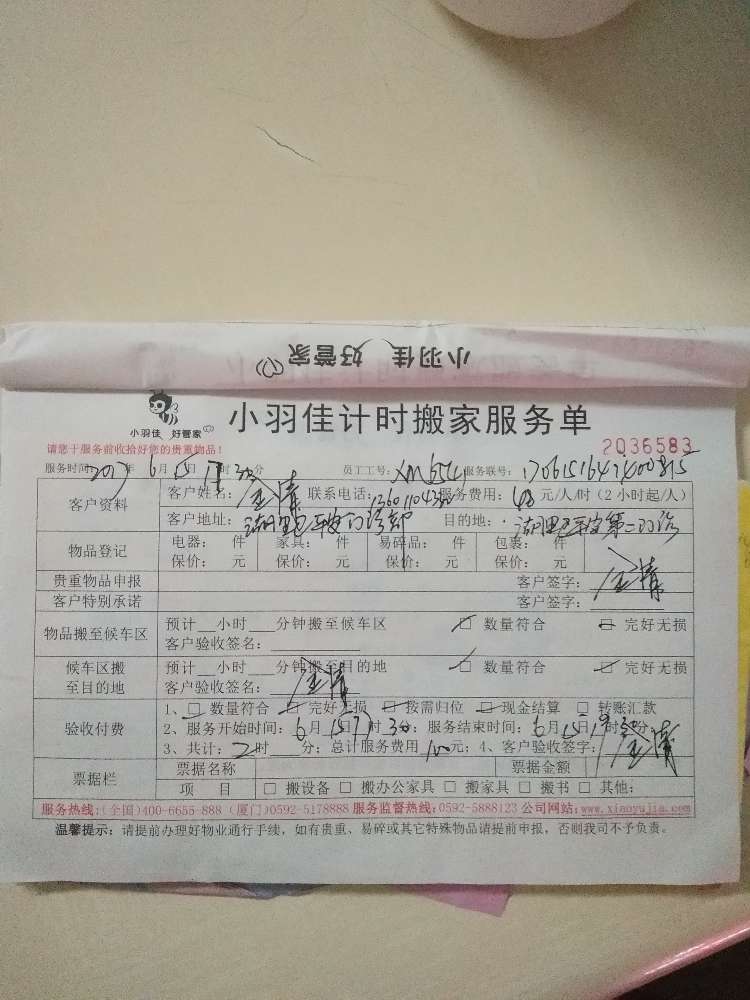 小羽佳 好管家
小羽佳 好管家
小羽佳计时搬家服务单
请您于服务前收拾好您的贵重物品！
2036583
服务时间：2017年6月15日 时 分 员工工号：XM654 服务联号：
客户资料 客户姓名： 联系电话： 服务费用： 元/人/时（2小时起/人）
客户地址： 目的地：
物品登记 电器： 件 家具： 件 易碎品： 件 包裹： 件
保价： 元 保价： 元 保价： 元 保价： 元
贵重物品申报 客户签字：
客户特别承诺 客户签字：
物品搬至候车区 预计__小时___分钟搬至候车区 □ 数量符合 □ 完好无损
客户验收签名：
候车区搬至目的地 预计__小时___分钟搬至目的地 □ 数量符合 □ 完好无损
客户验收签名：
验收付费 1、□ 数量符合 □ 完好无损 □ 按需归位 □ 现金结算 □ 转账汇款
2、服务开始时间：6月15日 时 分；服务结束时间：6月15日 时 分；
3、共计：2时 分；总计服务费用 元；4、客户验收签字：
票据栏 票据名称 票据金额
项 目 □ 搬设备 □ 搬办公家具 □ 搬家具 □ 搬书 □ 其他：
服务热线：（全国）400-6655-888（厦门）0592-5178888 服务监督热线：0592-5888123 公司网站：www.xiaoyujia.com
温馨提示：请提前办理好物业通行手续，如有贵重、易碎或其它特殊物品请提前申报，否则我司不予负责。